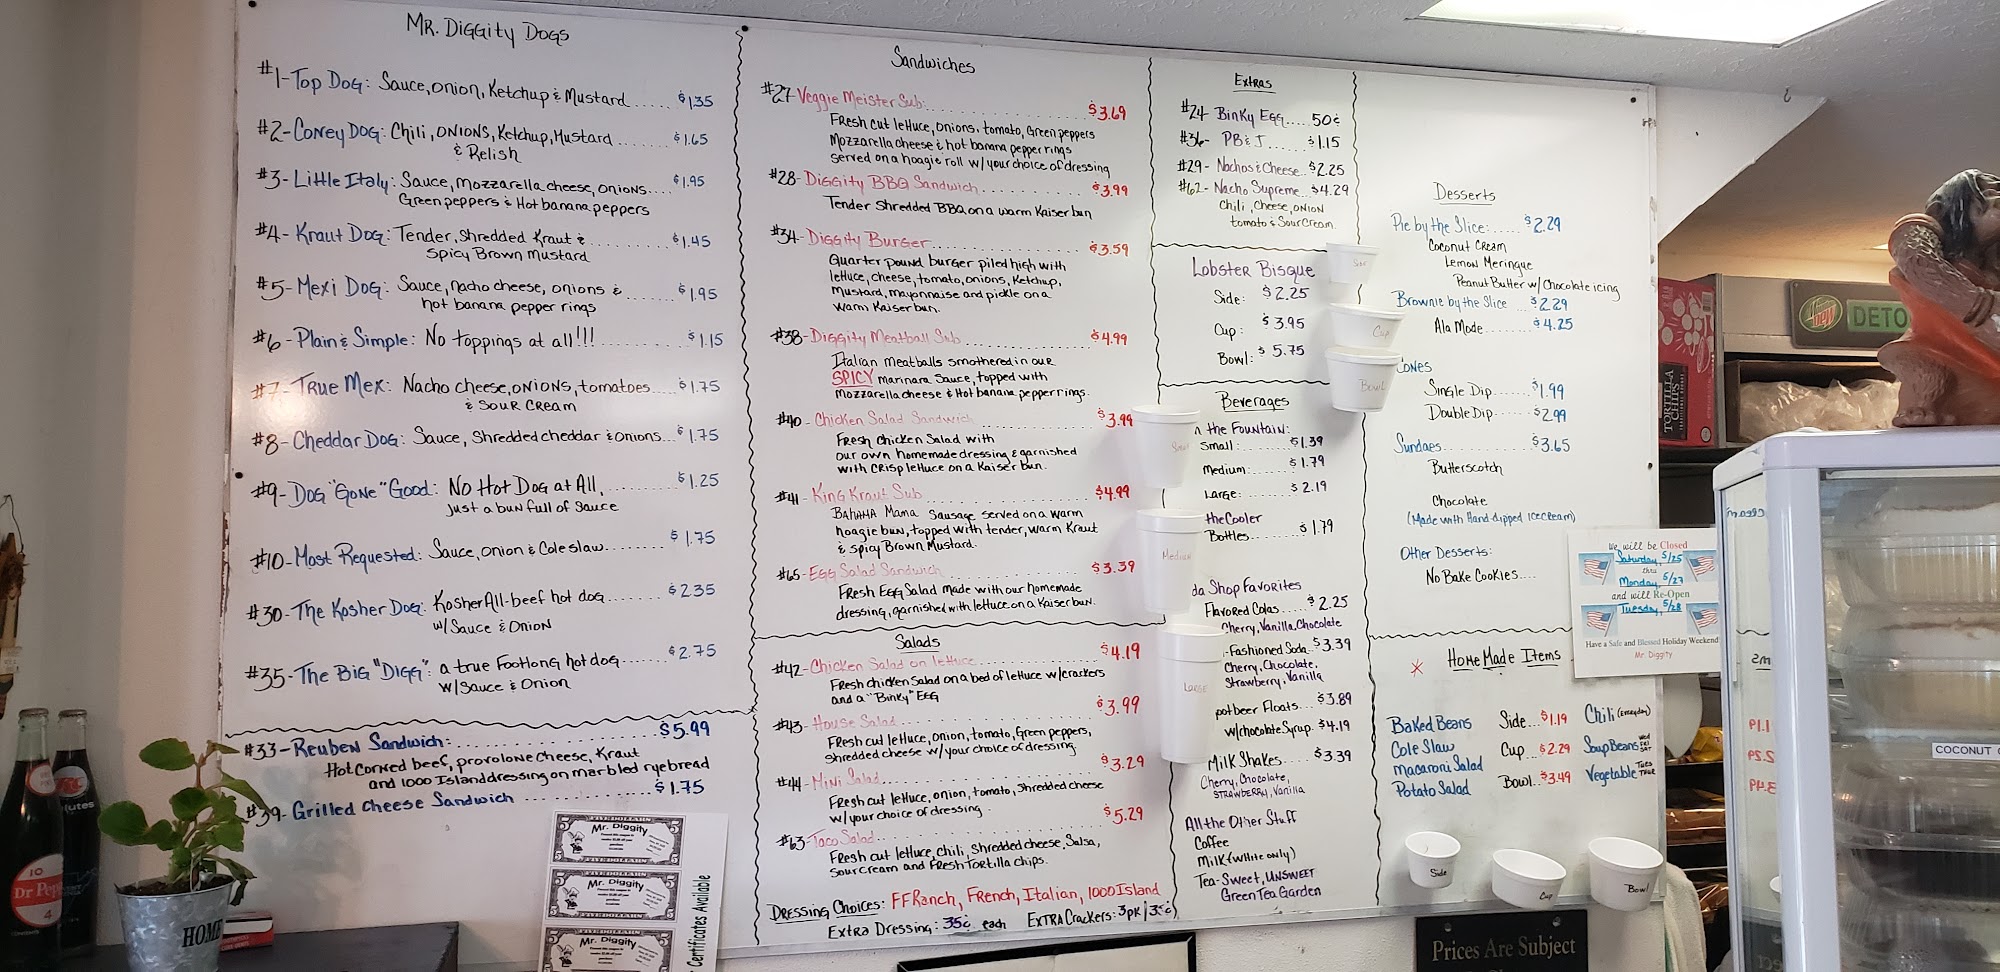 MR. DIGGITY DOGS
#1-TOP DOG: SAUCE, ONION, KETCHUP & MUSTARD..... $1.35
#2-CONEY DOG: CHILI, ONIONS, KETCHUP, MUSTARD ..... $1.65
& RELISH
#3-LITTLE ITALY: SAUCE, MOZZARELLA CHEESE, ONIONS.... $1.95
GREEN PEPPERS & HOT BANANA PEPPERS
#4-KRAUT DOG: TENDER, SHREDDED KRAUT & .......... $1.45
SPICY BROWN MUSTARD
#5-MEXI DOG: SAUCE, NACHO CHEESE, ONIONS & ....... $1.95
HOT BANANA PEPPER RINGS
#6-PLAIN & SIMPLE: NO TOPPINGS AT ALL!!! .......... $1.15
#7-TRUE MEX: NACHO CHEESE, ONIONS, TOMATOES..... $1.75
& SOUR CREAM
#8-CHEDDAR DOG: SAUCE, SHREDDED CHEDDAR & ONIONS... $1.75
#9-DOG "GONE" GOOD: NO HOT DOG AT ALL, .......... $1.25
JUST A BUN FULL OF SAUCE
#10-MOST REQUESTED: SAUCE, ONION & COLESLAW........ $1.75
#30-THE KOSHER DOG: KOSHER ALL-BEEF HOT DOG........ $2.35
W/SAUCE & ONION
#35-THE BIG "DIGG": A TRUE FOOTLONG HOT DOG....... $2.75
W/SAUCE & ONION
#33-REUBEN SANDWICH: .................... $5.99
HOT CORNED BEEF, PROVOLONE CHEESE, KRAUT
AND 1000 ISLAND DRESSING ON MARBLED RYE BREAD
#39-GRILLED CHEESE SANDWICH ............. $1.75
SANDWICHES
#27-VEGGIE MEISTER SUB: .................. $3.69
FRESH CUT LETTUCE, ONIONS, TOMATO, GREEN PEPPERS
MOZZARELLA CHEESE & HOT BANANA PEPPER RINGS
SERVED ON A HOAGIE ROLL W/YOUR CHOICE OF DRESSING
#28-DIGGITY BBQ SANDWICH ............. $3.99
TENDER SHREDDED BBQ ON A WARM KAISER BUN
#34-DIGGITY BURGER.................. $3.59
QUARTER POUND BURGER PILED HIGH WITH
LETTUCE, CHEESE, TOMATO, ONIONS, KETCHUP,
MUSTARD, MAYONNAISE AND PICKLE ON A
WARM KAISER BUN.
#38-DIGGITY MEATBALL SUB ............. $4.99
ITALIAN MEATBALLS SMOTHERED IN OUR
SPICY MARINARA SAUCE, TOPPED WITH
MOZZARELLA CHEESE & HOT BANANA PEPPER RINGS.
#40-CHICKEN SALAD SANDWICH ............. $3.99
FRESH CHICKEN SALAD WITH
OUR OWN HOMEMADE DRESSING & GARNISHED
WITH CRISP LETTUCE ON A KAISER BUN.
#41-KING KRAUT SUB .................. $4.99
BAHAMA MAMA SAUSAGE SERVED ON A WARM
HOAGIE BUN, TOPPED WITH TENDER, WARM KRAUT
& SPICY BROWN MUSTARD.
#65-EGG SALAD SANDWICH ............. $3.39
FRESH EGG SALAD MADE WITH OUR HOMEMADE
DRESSING, GARNISHED WITH LETTUCE ON A KAISER BUN.
SALADS
#42-CHICKEN SALAD ON LETTUCE............. $4.19
FRESH CHICKEN SALAD ON A BED OF LETTUCE W/CRACKERS
AND A "BINKY" EGG
#43-HOUSE SALAD .................. $3.99
FRESH CUT LETTUCE, ONION, TOMATO, GREEN PEPPERS,
SHREDDED CHEESE W/YOUR CHOICE OF DRESSING.
#44-MINI SALAD.................. $3.29
FRESH CUT LETTUCE, ONION, TOMATO, SHREDDED CHEESE
W/YOUR CHOICE OF DRESSING.
#63-TACO SALAD.................. $5.29
FRESH CUT LETTUCE, CHILI, SHREDDED CHEESE, SALSA,
SOUR CREAM AND FRESH TORTILLA CHIPS.
DRESSING CHOICES: FF RANCH, FRENCH, ITALIAN, 1000 ISLAND
EXTRA DRESSING: 35¢ each EXTRA CRACKERS: 3PK/35¢
EXTRAS
#24-BINKY EGG..... 50¢
#36-PB & J ..... $1.15
#29-NACHOS & CHEESE.. $2.25
#62-NACHO SUPREME.. $4.29
CHILI, CHEESE, ONION
TOMATO & SOUR CREAM.
LOBSTER BISQUE
SIDE: $2.25
CUP: $3.95
BOWL: $5.75
Side
Cup
Bowl
BEVERAGES
THE FOUNTAIN:
SMALL:........ $1.39
MEDIUM:....... $1.79
LARGE:....... $2.19
THE COOLER
BOTTLES........ $1.79
SHOP FAVORITES
FLAVORED COLAS..... $2.25
CHERRY, VANILLA, CHOCOLATE
-FASHIONED SODA.. $3.39
CHERRY, CHOCOLATE,
STRAWBERRY, VANILLA
FLOATS... $3.89
W/CHOCOLATE SYRUP. $4.19
MILK SHAKES.... $3.39
CHERRY, CHOCOLATE,
STRAWBERRY, VANILLA
ALL THE OTHER STUFF
COFFEE
MILK (WHITE ONLY)
TEA-SWEET, UNSWEET
GREEN TEA GARDEN
Small
Medium
LARGE
DESSERTS
PIE BY THE SLICE:..... $2.29
COCONUT CREAM
LEMON MERINGUE
PEANUT BUTTER W/ CHOCOLATE ICING
BROWNIE BY THE SLICE .. $2.29
ALA MODE........ $4.25
CONES
SINGLE DIP....... $1.99
DOUBLE DIP....... $2.99
SUNDAES............. $3.65
BUTTERSCOTCH
CHOCOLATE
(MADE WITH HAND-DIPPED ICE CREAM)
OTHER DESSERTS:
NO BAKE COOKIES....
We will be Closed
Saturday, 5/25
thru
Monday, 5/27
and will Re-Open
Tuesday, 5/28
Have a Safe and Blessed Holiday Weekend
Mr. Diggity
* HOMEMADE ITEMS
BAKED BEANS
COLE SLAW
MACARONI SALAD
POTATO SALAD
SIDE... $1.19
CUP... $2.29
BOWL.. $3.49
CHILI (EVERYDAY)
SOUP BEANS WED FRI SAT
VEGETABLE TUES THUR
Side
Cup
Bowl
Prices Are Subject
FIVE DOLLARS
Mr. Diggity
FIVE DOLLARS
Mr. Diggity
FIVE DOLLARS
Mr. Diggity
Certificates Available
HOME
10
Dr Pep
4
TORTILLA
CHIPS
DETO
COCONUT C